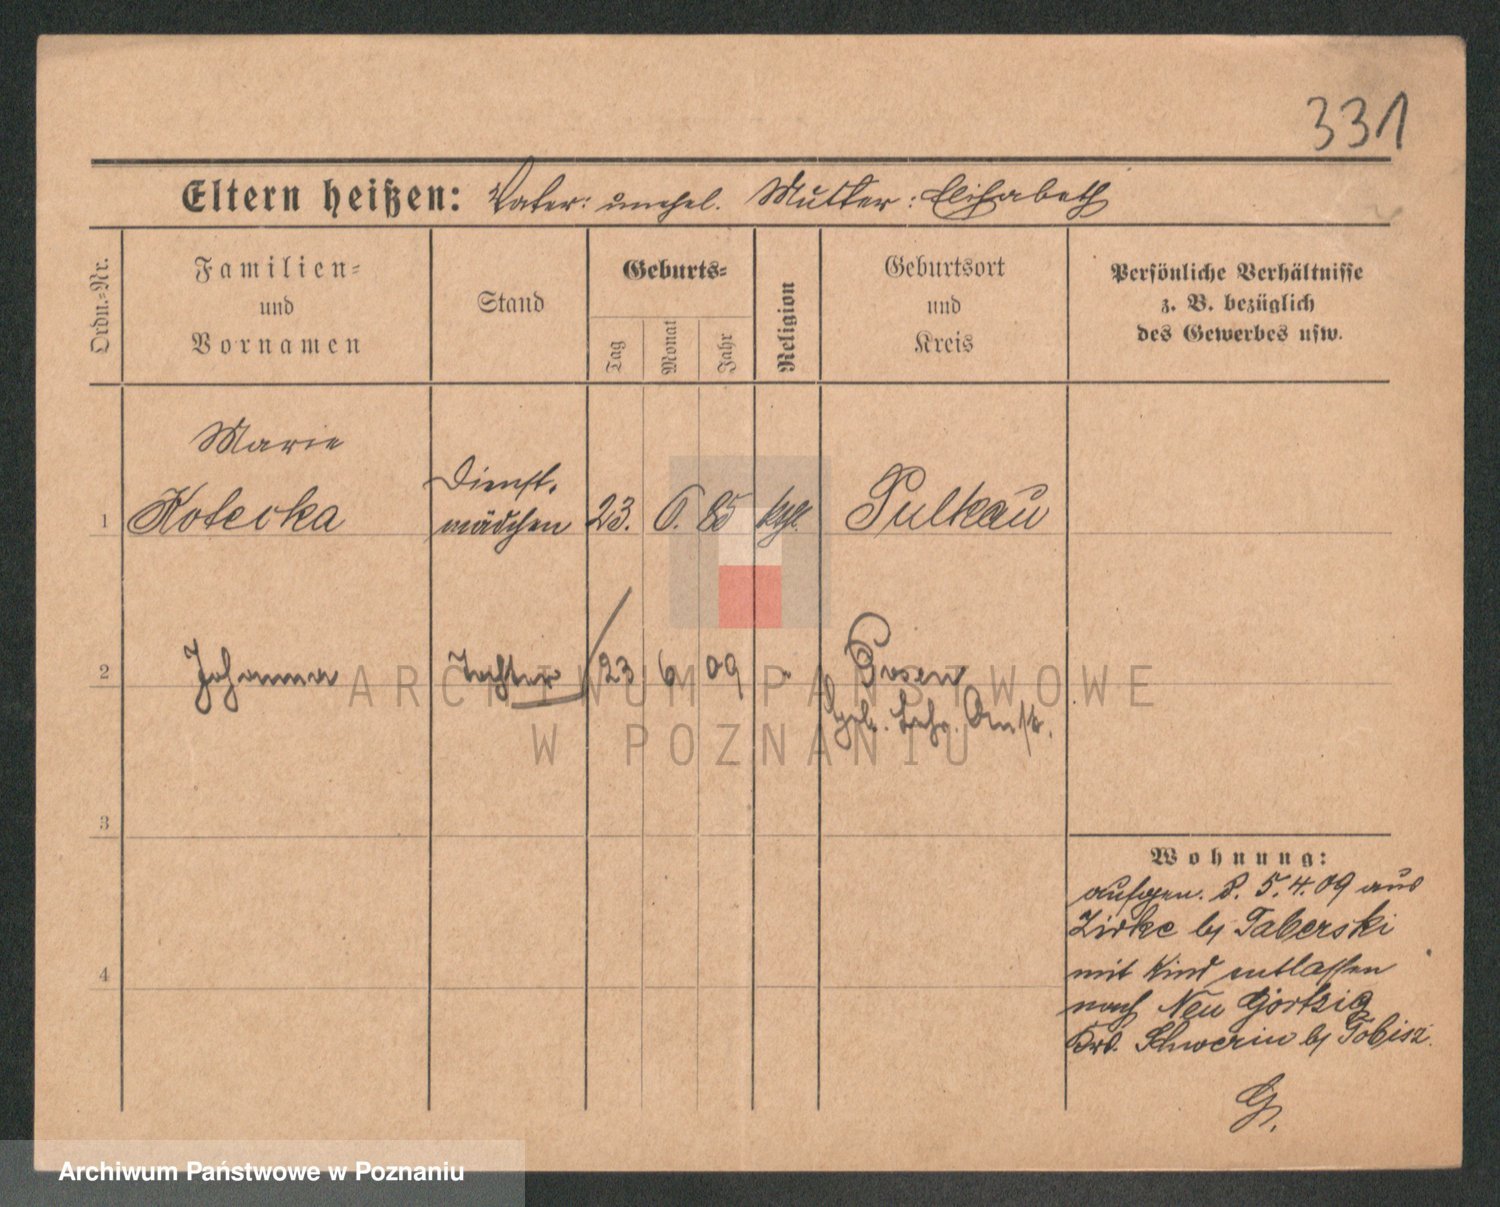 331
Eltern heißen: Vater: unehel. Mutter: Elisabeth
Ordn.=Nr.
Familien=
und
Vornamen
Stand
Geburts=
Tag
Monat
Jahr
Religion
Geburtsort
und
Kreis
Persönliche Verhältnisse
z. B. bezüglich
des Gewerbes usw.
Marie
Dienst.
1 Kotecka mädchen 23. 6. 85 kath. Pulkau
2 Johanna Tochter 23 6 09 " Posen
Geb. Lehr. Anst.
3
4
Wohnung:
aufgen. d. 5.4.09 aus
Zirke b/ Taberski
mit Kind entlassen
nach Neu Görtzig
Krs. Schwerin b/ Tobisz.
G.
ARCHIWUM PAŃSTWOWE
W POZNANIU
Archiwum Państwowe w Poznaniu